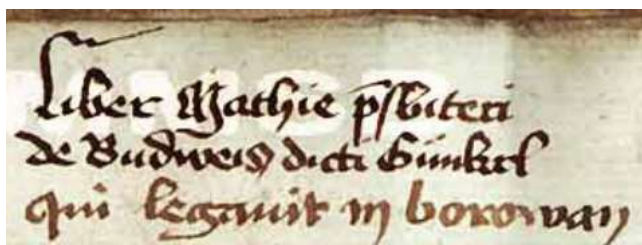 Liber Mathie p̄sbiteri
de Budweis dicti Gúnkel
qui legauit in borowan